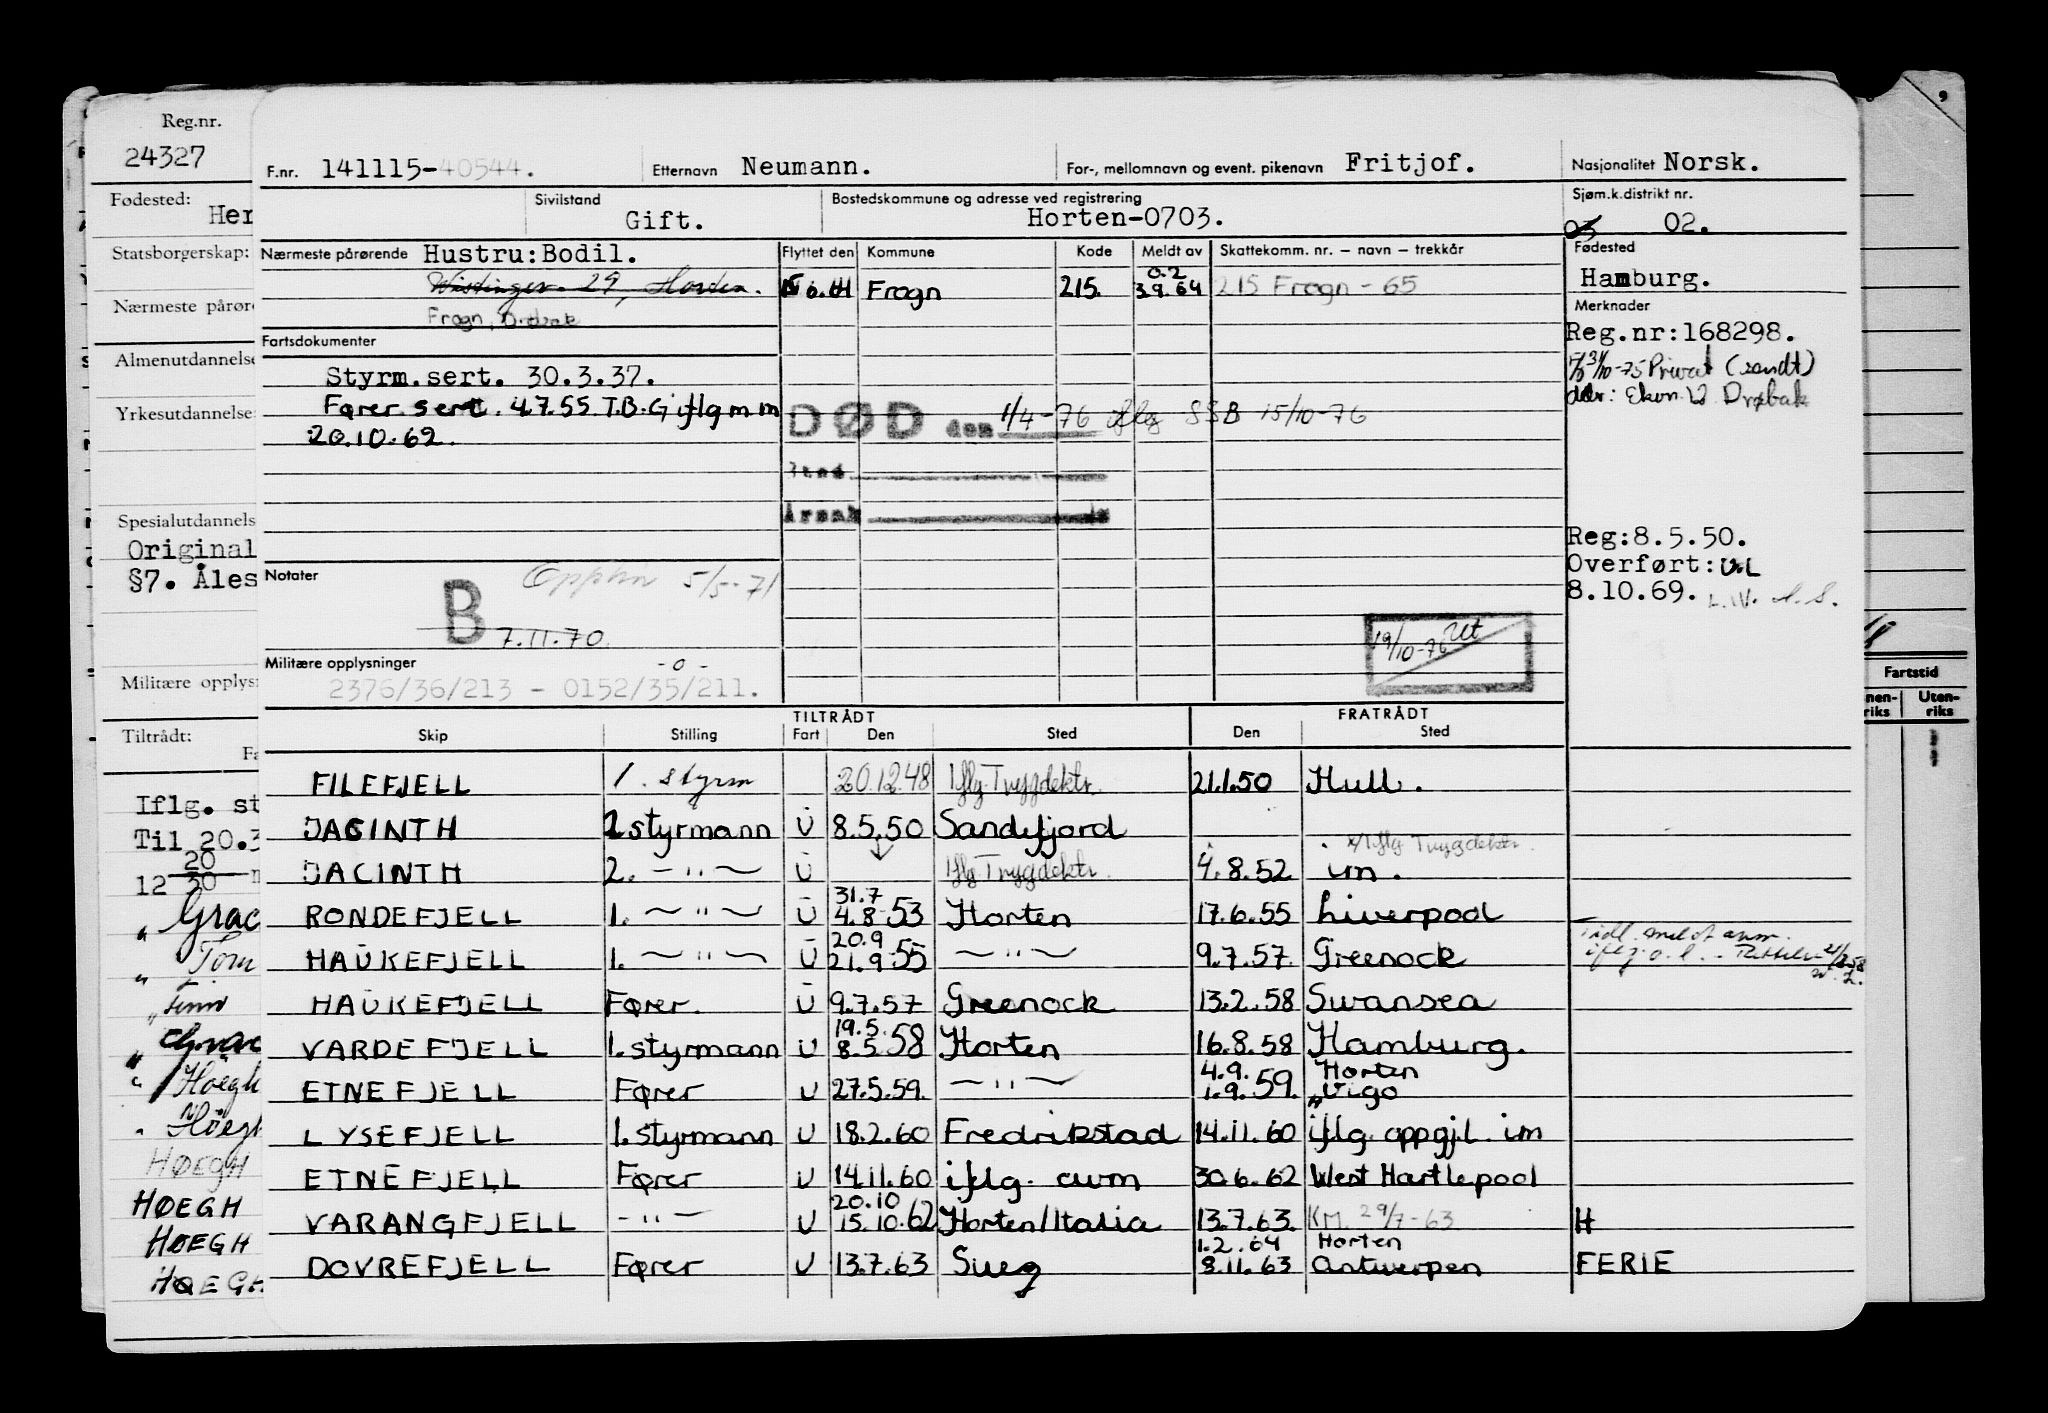 Reg.nr.
24327
F.nr. 141115-40544. Etternavn Neumann. For-, mellomnavn og event. pikenavn Fritjof. Nasjonalitet Norsk.
Fødested:
Her
Sivilstand Gift. Bostedskommune og adresse ved registrering Horten-0703. Sjøm.k.distrikt nr. 03 02.
Statsborgerskap:
Nærmeste pårørende Hustru:Bodil. Flyttet den Kommune Kode Meldt av Skattekomm. nr. – navn – trekkår Fødested
Hamburg.
29, Horten. Frogn 215. 02 3.9.64 215 Frogn - 65
Nærmeste pårør
Frogn, Drøbak
Merknader
Reg.nr:168298.
31/10-75 Privat (sendt)
Drøbak
Fartsdokumenter
Almenutdannelse
Styrm.sert. 30.3.37.
Yrkesutdannelse:
Fører sert. 4.7.55 T.B.G iflg m m
20.10.62.
DØD den 1/4-76 iflg SSB 15/10-76
Sted
Årsak
Spesialutdannels
Original
§7. Åles
Reg:8.5.50.
Overført:
8.10.69.
Notater
B 7.11.70.
5/5-71
19/10-76 Ut
Militære opplys
Militære opplysninger -o-
2376/36/213 - 0152/35/211.
Fartstid
nen-riks Uten-riks
Tiltrådt:
TILTRÅDT FRATRÅDT
Skip Stilling Fart Den Sted Den Sted
FILEFJELL 1. styrm 20.12.48 Iflg. Trygdektr. 21.1.50 Hull.
Iflg. st
JACINTH 2 styrmann U 8.5.50 Sandefjord
Til 20.3
x/Iflg Trygdektr.
JACINTH 2. —"— U Iflg Trygdektr. 4.8.52 im.
12 20/30
RONDEFJELL 1. —"— U 31.7 4.8 53 Horten 17.6.55 Liverpool
" Grac
HAUKEFJELL 1. —"— U 20.9 21.9 55 —"— 9.7.57. Greenock
" Tom
HAUKEFJELL Fører. U 9.7.57 Greenock 13.2.58 Swansea
VARDEFJELL 1. styrmann U 19.5. 8.5 58 Horten 16.8.58 Hamburg.
ETNEFJELL Fører U 27.5.59. —"— 4.9. 1.9. 59. Horten "Vigo
" Hoegh
LYSEFJELL 1. styrmann U 18.2.60 Fredrikstad 14.11.60 iflg. oppgj.l. im
" Höegh
ETNEFJELL Fører U 14.11.60 iflg. avm 30.6.62 West Hartlepool
HØEGH
VARANGFJELL —"— U 20.10 15.10.62 Horten/Italia 13.7.63. KM. 29/7-63 H
HØEGH
DOVREFJELL Fører U 13.7.63 Sueg 1.2.64 8.11.63 Horten Antwerpen FERIE
HØEGH
HØEGH